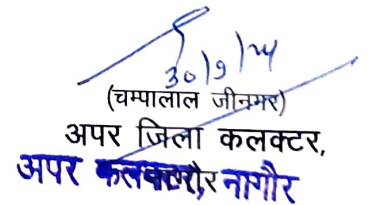 30/9/24
(चम्पालाल जीनगर)
अपर जिला कलक्टर,
अपर कलक्टर, नागौर